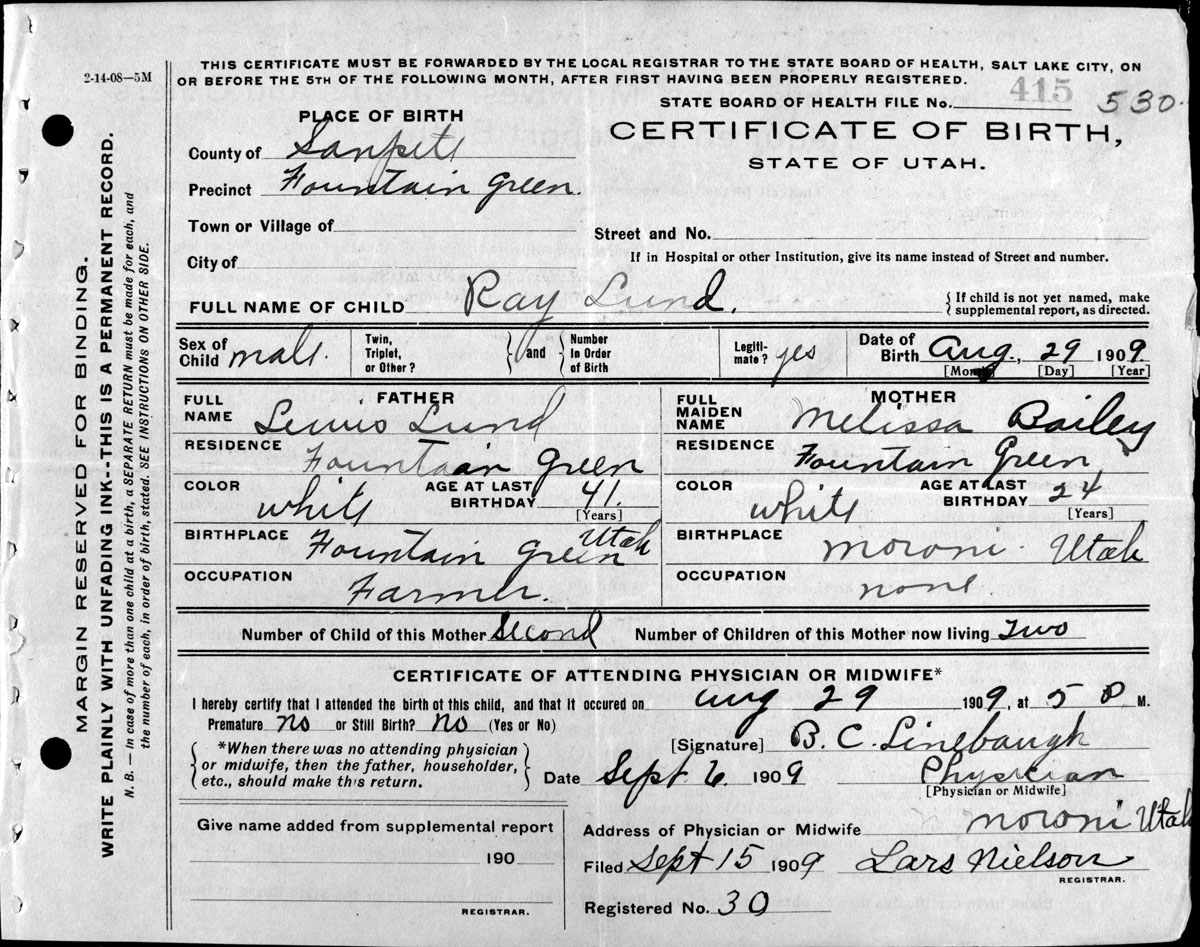 2-14-08—5M
THIS CERTIFICATE MUST BE FORWARDED BY THE LOCAL REGISTRAR TO THE STATE BOARD OF HEALTH, SALT LAKE CITY, ON
OR BEFORE THE 5TH OF THE FOLLOWING MONTH, AFTER FIRST HAVING BEEN PROPERLY REGISTERED.
STATE BOARD OF HEALTH FILE No. 415 530
PLACE OF BIRTH
CERTIFICATE OF BIRTH,
STATE OF UTAH.
County of Sanpete
Precinct Fountain Green.
Town or Village of
Street and No.
City of
If in Hospital or other Institution, give its name instead of Street and number.
FULL NAME OF CHILD Ray Lund.
{ If child is not yet named, make
supplemental report, as directed.
Sex of Child male.
Twin, Triplet, or Other?
and
Number In Order of Birth
Legiti- mate? yes
Date of Birth Aug, 29 1909
[Month] [Day] [Year]
FATHER
FULL NAME Lewis Lund
RESIDENCE Fountain Green
COLOR white
AGE AT LAST BIRTHDAY 41.
[Years]
BIRTHPLACE Fountain Green Utah
OCCUPATION Farmer.
MOTHER
FULL MAIDEN NAME Melissa Bailey
RESIDENCE Fountain Green
COLOR white
AGE AT LAST BIRTHDAY 24
[Years]
BIRTHPLACE Moroni. Utah
OCCUPATION none
Number of Child of this Mother Second Number of Children of this Mother now living Two
CERTIFICATE OF ATTENDING PHYSICIAN OR MIDWIFE*
I hereby certify that I attended the birth of this child, and that it occured on Aug 29 1909, at 5 M.
Premature no or Still Birth? no (Yes or No)
[Signature] B. C. Linebaugh
{ *When there was no attending physician
or midwife, then the father, householder,
etc., should make this return. }
Date Sept 6. 1909 Physician
[Physician or Midwife]
Give name added from supplemental report
190
REGISTRAR.
Address of Physician or Midwife Moroni Utah
Filed Sept 15 1909 Lars Nielson
REGISTRAR.
Registered No. 30
MARGIN RESERVED FOR BINDING.
WRITE PLAINLY WITH UNFADING INK--THIS IS A PERMANENT RECORD.
N. B. — In case of more than one child at a birth, a SEPARATE RETURN must be made for each, and
the number of each, in order of birth, stated. SEE INSTRUCTIONS ON OTHER SIDE.